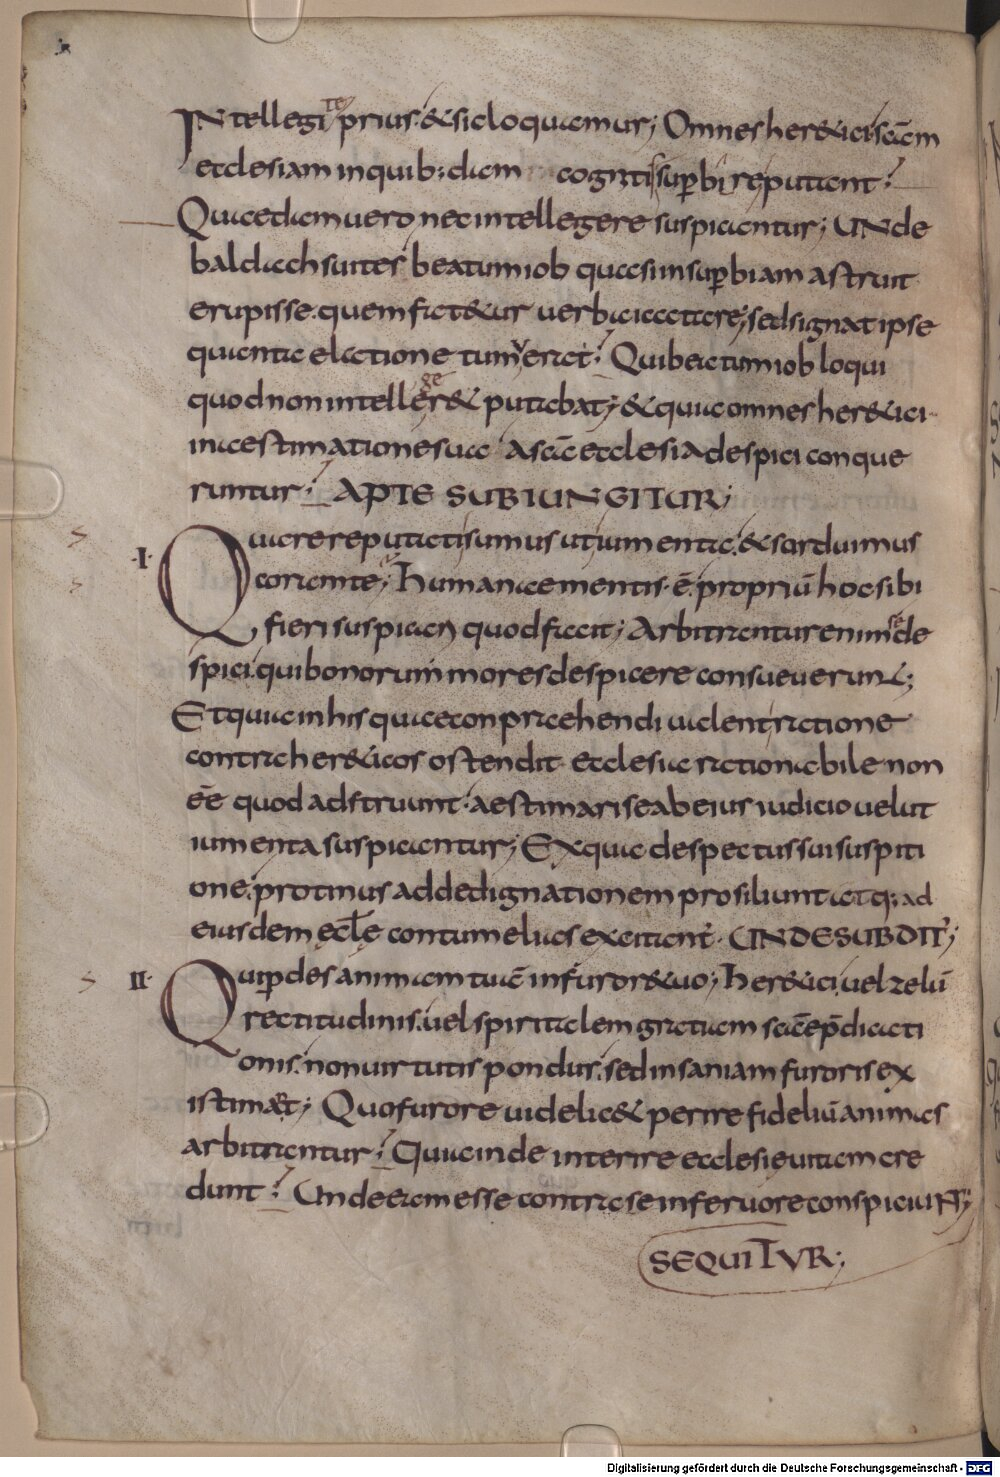 INtellegite prius & sic loquamur; Omnes her&ici scām
ecclesiam in quib; dam cognitis superbire putant;
Quaedam vero nec intellegere suspicantur; UNde
baldach suites beatum iob quasi in supbiam astruit
erupisse. quem fat&ur verba iactare; sed signat ipse
quanta elatione tumuerat; Qui beatum iob loqui
quod non intelleger& putabat; & quia omnes her&ici
in aestimatione sua A scā ecclesia despici conque
runtur; APTE SUBIUNGITUR;
·I· Quare reputati sumus ut iumenta. & sorduimus
coram te; Humanae mentis ē propriū hoc sibi
fieri suspicari quod facit; Arbitrantur enim se de
spici. qui bonorum mores despicere consueverunt;
Et quia in his quae conpraehendi valent ratione
contra her&icos ostendit ecclesia rationabile non
eē quod adstruunt. aestimari se ab eius iudicio velut
iumenta suspicantur; Ex qua despectus sui suspiti
one. protinus ad dedignationem prosiliunt atq; ad
eiusdem ecłę contumelias excitant. UNDE SUBDIT;
II· Quid pdes animam tuā in furore tuo; her&ici. vel zelū
rectitudinis. vel spiritalem gratiam scāe p̄dicati
onis. non virtutis pondus. sed insaniam furoris ex
istimant; Quo furore videlic& perire fideliū animas
arbitrantur; Quia inde interire ecclesię vitam cre
dunt; Unde eam esse contra se in fervore conspiciuNT;
SEQUITVR;
Digitalisierung gefördert durch die Deutsche Forschungsgemeinschaft - DFG